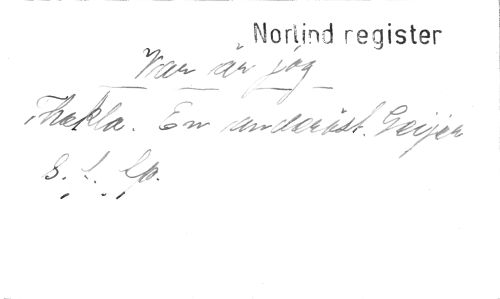 Norlind register
Var är jag
Thekla. En anderöst. Geijer
S. l. Ep.